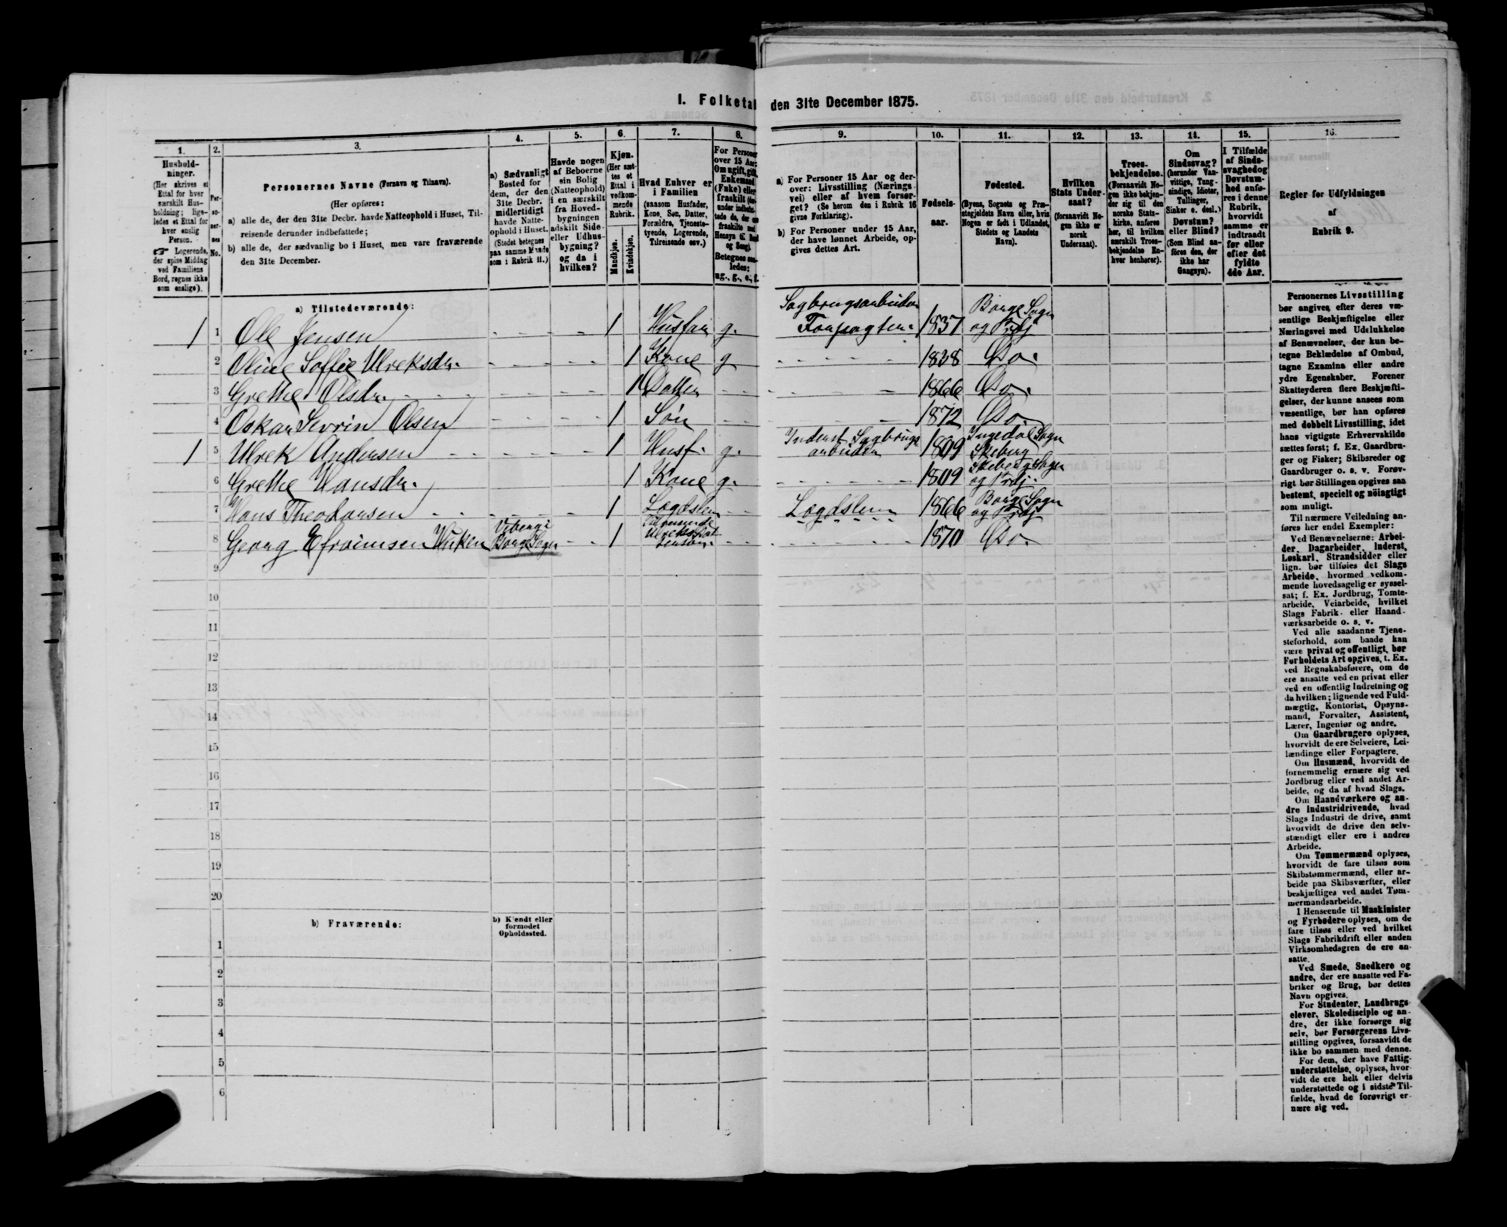 I. Folketal den 31te December 1875.
1.
Hushold-
ninger.
(Her skrives et
Ettal for hver
særskilt Hus-
holdning; lige-
ledes et Ettal for
hver enslig
Person.
☞ Logerende,
der spise Middag
ved Familiens
Bord, regnes ikke
som enslige).
2.
Per-
so-
ner-
nes
No.
3.
Personernes Navne (Fornavn og Tilnavn).
(Her opføres:
a) alle de, der den 31te Decbr. havde Natteophold i Huset, Til-
reisende derunder indbefattede;
b) alle de, der sædvanlig bo i Huset, men vare fraværende
den 31te December.
4.
a) Sædvanligt
Bosted for
dem, der den
31te Decbr.
midlertidigt
havde Natte-
ophold i Huset.
(Stedet betegnes
paa samme Maade
som i Rubrik 11.)
5.
Havde nogen
af Beboerne
sin Bolig
(Natteophold)
i en særskilt
fra Hoved-
bygningen
adskilt Side-
eller Udhus-
bygning?
og da i
hvilken?
6.
Kjøn.
(Her sæt-
tes et
Ettal i
vedkom-
mende
Rubrik.
Mandkjøn.
Kvindekjøn.
7.
Hvad Enhver er
i Familien
(saasom Husfader,
Kone, Søn, Datter,
Forældre, Tjeneste-
tyende, Logerende,
Tilreisende osv.)
8.
For Personer
over 15 Aar:
Om ugift, gift,
Enkemand
(Enke) eller
fraskilt
9.
a) For Personer 15 Aar og der-
over: Livsstilling (Nærings-
vei) eller af hvem forsør-
get? (Se herom den i Rubrik 16
givne Forklaring).
b) For Personer under 15 Aar,
der have lønnet Arbeide, op-
gives dettes Art.
10.
Fødsels-
aar.
11.
Fødested.
(Byens, Sognets og Præ-
stegjeldets Navn eller, hvis
Nogen er født i Udlandet,
Stedets og Landets
Navn).
12.
Hvilken
Stats Under-
saat?
(forsaavidt No-
gen ikke er
norsk
Undersaat).
13.
Troes-
bekjendelse.
(Forsaavidt No-
gen ikke bekjen-
der sig til den
norske Stats-
kirke, anføres
her, til hvilken
særskilt Troes-
bekjendelse En-
hver henhører).
14.
Om
Sindssvag?
(herunder Van-
vittige, Tung-
sindige, Idioter,
Tullinger,
Sinker o. desl.)
Døvstum?
eller Blind?
(Som Blind an-
føres den, der
ikke har
Gangsyn).
15.
I Tilfælde
af Sinds-
svaghed og
Døvstum-
hed anfø-
res i denne
Rubrik,
hvorvidt
samme er
indtraadt
før eller
efter det
fyldte
4de Aar.
16.
Regler for Udfyldningen
af
Rubrik 9.
a) Tilstedeværende:
1 1 Ole Jensen 1 Husfar g. Sagbrugsarbeider Forpagter 1837 Borge Sogn og Prstj
2 Oline Soffie Ulreksdr. 1 Kone g 1838 Do.
3 Grethe Olsdr. 1 Datter 1866 Do.
4 Oskar Sevrin Olsen 1 Søn 1872 Do.
1 5 Ulrek Andersen 1 Husf. g. Inderst Sagbrugs arbeider 1809 Ingedal Sogn Skeberg
6 Grethe Hansdr. 1 Kone g. 1809 Skeberg Sogn og Prstj.
7 Hans Theodorsen 1 Lægdslem Lægdslem 1866 Borge Sogn og Prstj
8 Georg Efraimsen Borge Sogn 1 1870 Do.
9
10
11
12
13
14
15
16
17
18
19
20
b) Fraværende:
b) Kjendt eller
formodet
Opholdssted.
1
2
3
4
5
6
Personernes Livsstilling
bør angives efter deres væ-
sentlige Beskjæftigelse eller
Næringsvei med Udelukkelse
af Benævnelser, der kun be-
tegne Beklædelse af Ombud,
tagne Examina eller andre
ydre Egenskaber. Forener
Skatteyderen flere Beskjæfti-
gelser, der kunne ansees som
væsentlige, bør han opføres
med dobbelt Livsstilling, idet
hans vigtigste Erhvervskilde
sættes først; f. Ex. Gaardbru-
ger og Fisker; Skibsreder og
Gaardbruger o. s. v. Forøv-
rigt bør Stillingen opgives saa
bestemt, specielt og nöiagtigt
som muligt.
Til nærmere Veiledning an-
føres her endel Exempler:
Ved Benævnelserne: Arbei-
der, Dagarbeider, Inderst,
Løskarl, Strandsidder eller
lign. bør tilføies det Slags
Arbeide, hvormed vedkom-
mende hovedsagelig er syssel-
sat; f. Ex. Jordbrug, Tomte-
arbeide, Veiarbeide, hvilket
Slags Fabrik- eller Haand-
værksarbeide o. s. v.
Ved alle saadanne Tjene-
steforhold, som baade kan
være privat og offentligt, bør
Forholdets Art opgives, t. Ex.
ved Regnskabsførere, om de
ere ansatte ved en privat eller
ved en offentlig Indretning og
da hvilken; lignende ved Fuld-
mægtig, Kontorist, Opsyns-
mand, Forvalter, Assistent,
Lærer, Ingeniør og andre.
Om Gaardbrugere oplyses,
hvorvidt de ere Selveiere, Lei-
lændinge eller Forpagtere.
Om Husmænd, hvorvidt de
fornemmelig ernære sig ved
Jordbrug eller ved andet Ar-
beide, og da af hvad Slags.
Om Haandværkere og an-
dre Industridrivende, hvad
Slags Industri de drive, samt
hvorvidt de drive den selv-
stændigt eller ere i andres
Arbeide.
Om Tømmermænd oplyses,
hvorvidt de fare tilsøs som
Skibstømmermænd, eller ar-
beide paa Skibsværfter, eller
beskjæftiges ved andet Tøm-
mermandsarbeide.
I Henseende til Maskinister
og Fyrbødere oplyses, om de
fare tilsøs eller ved hvilket
Slags Fabrikdrift eller anden
Virksomhedsgren de ere an-
satte.
Ved Smede, Snedkere og
andre, der ere ansatte ved Fa-
briker og Brug, bør dettes
Navn opgives.
For Studenter, Landbrugs-
elever, Skoledisciple og an-
dre, der ikke forsørge sig
selv, bør Forsørgerens Livs-
stilling opgives, forsaavidt de
ikke bo sammen med denne.
For dem, der have Fattig-
understøttelse, oplyses, hvor-
vidt de ere helt eller delvis
understøttede og i sidste Til-
fælde, hvad de forøvrigt er-
nære sig ved.